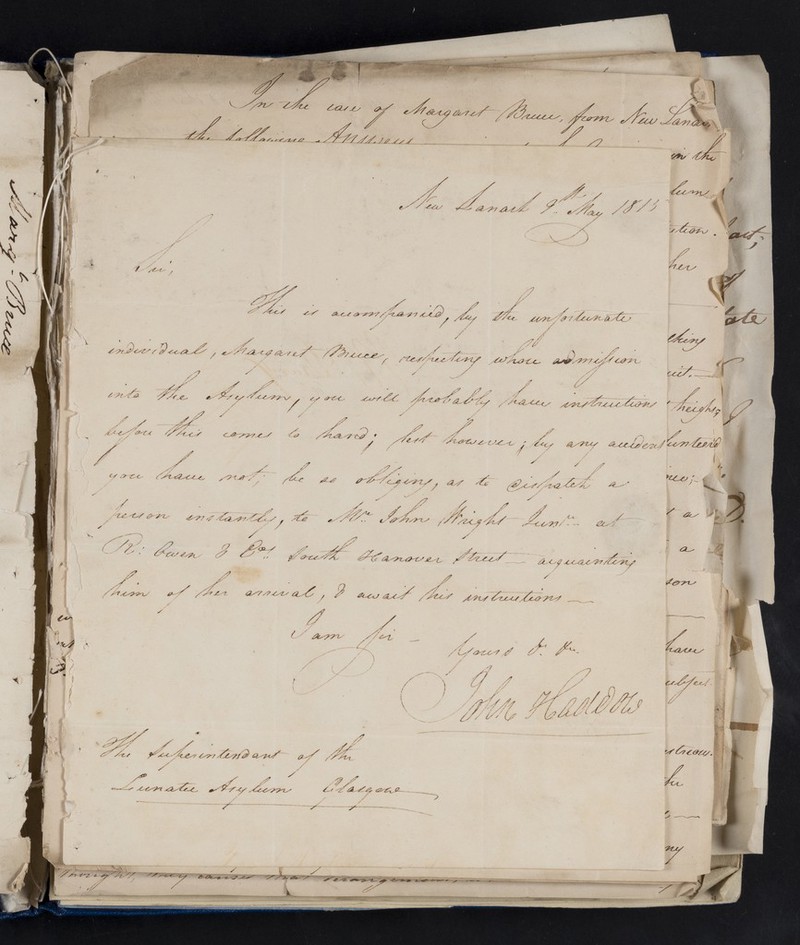 In the case of Margaret Bruce, from New Lanark
the following Answers
New Lanark 9th May 1815
Sir,
This is accompanied, by the unfortunate
individual, Margaret Bruce, respecting whose admission
into the Asylum, you will probably have instructions
before this comes to hand; lest however; by any accident
you have not; be so obliging, as to dispatch a
person instantly, to Mr. John Wright Junr. at
R: Owen & Cos. South Hanover Street — acquainting
him of her arrival, & await his instructions —
I am Sir —
Yours &c. &c.
John Haddow
The Superintendant of the
Lunatic Asylum Glasgow
Margt. Bruce
in the
her
a
a
have
the